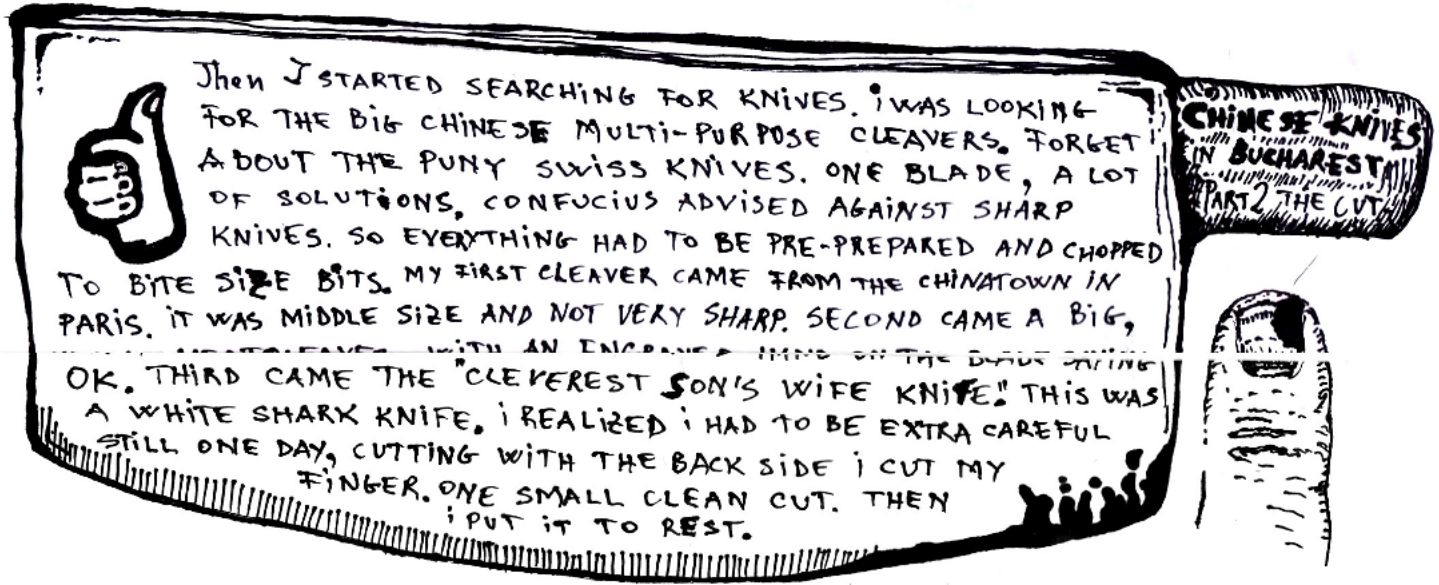 Then I STARTED SEARCHING FOR KNIVES. i WAS LOOKING
FOR THE BIG CHINESE MULTI-PURPOSE CLEAVERS. FORGET
ABOUT THE PUNY SWISS KNIVES. ONE BLADE, A LOT
OF SOLUTIONS, CONFUCIUS ADVISED AGAINST SHARP
KNIVES. SO EVERYTHING HAD TO BE PRE-PREPARED AND CHOPPED
TO BITE SIZE BITS. MY FIRST CLEAVER CAME FROM THE CHINATOWN IN
PARIS. IT WAS MIDDLE SIZE AND NOT VERY SHARP. SECOND CAME A BIG,
WITH AN ENGRAVED ON THE BLADE SAYING
OK. THIRD CAME THE "CLEVEREST SON'S WIFE KNIFE." THIS WAS
A WHITE SHARK KNIFE. i REALIZED i HAD TO BE EXTRA CAREFUL
STILL ONE DAY, CUTTING WITH THE BACK SIDE i CUT MY
FINGER. ONE SMALL CLEAN CUT. THEN
i PUT IT TO REST.
CHINESE KNIVES
IN BUCHAREST
PART 2 THE CUT